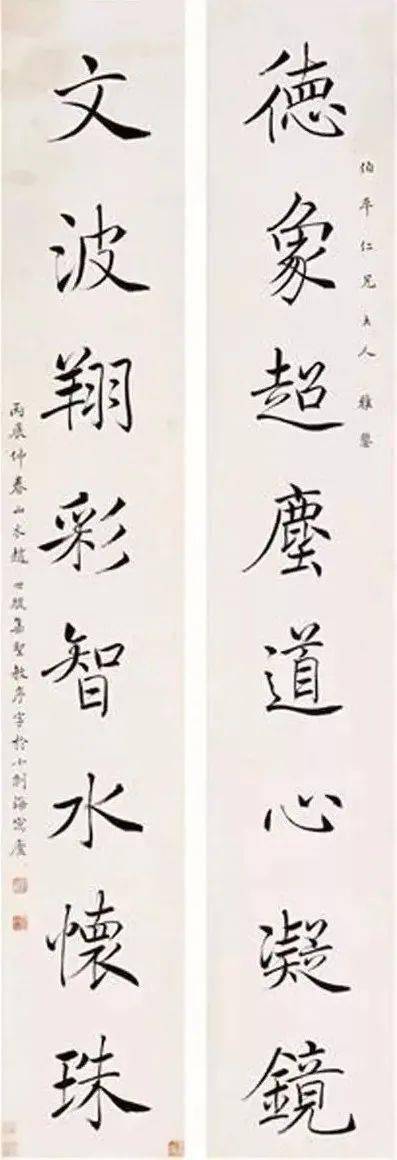 伯平仁兄大人 雅鑒
德象超塵道心凝鏡
文波翔彩智水懷珠
丙辰仲春山木趙世駿集聖教序字於小刹海寓廬